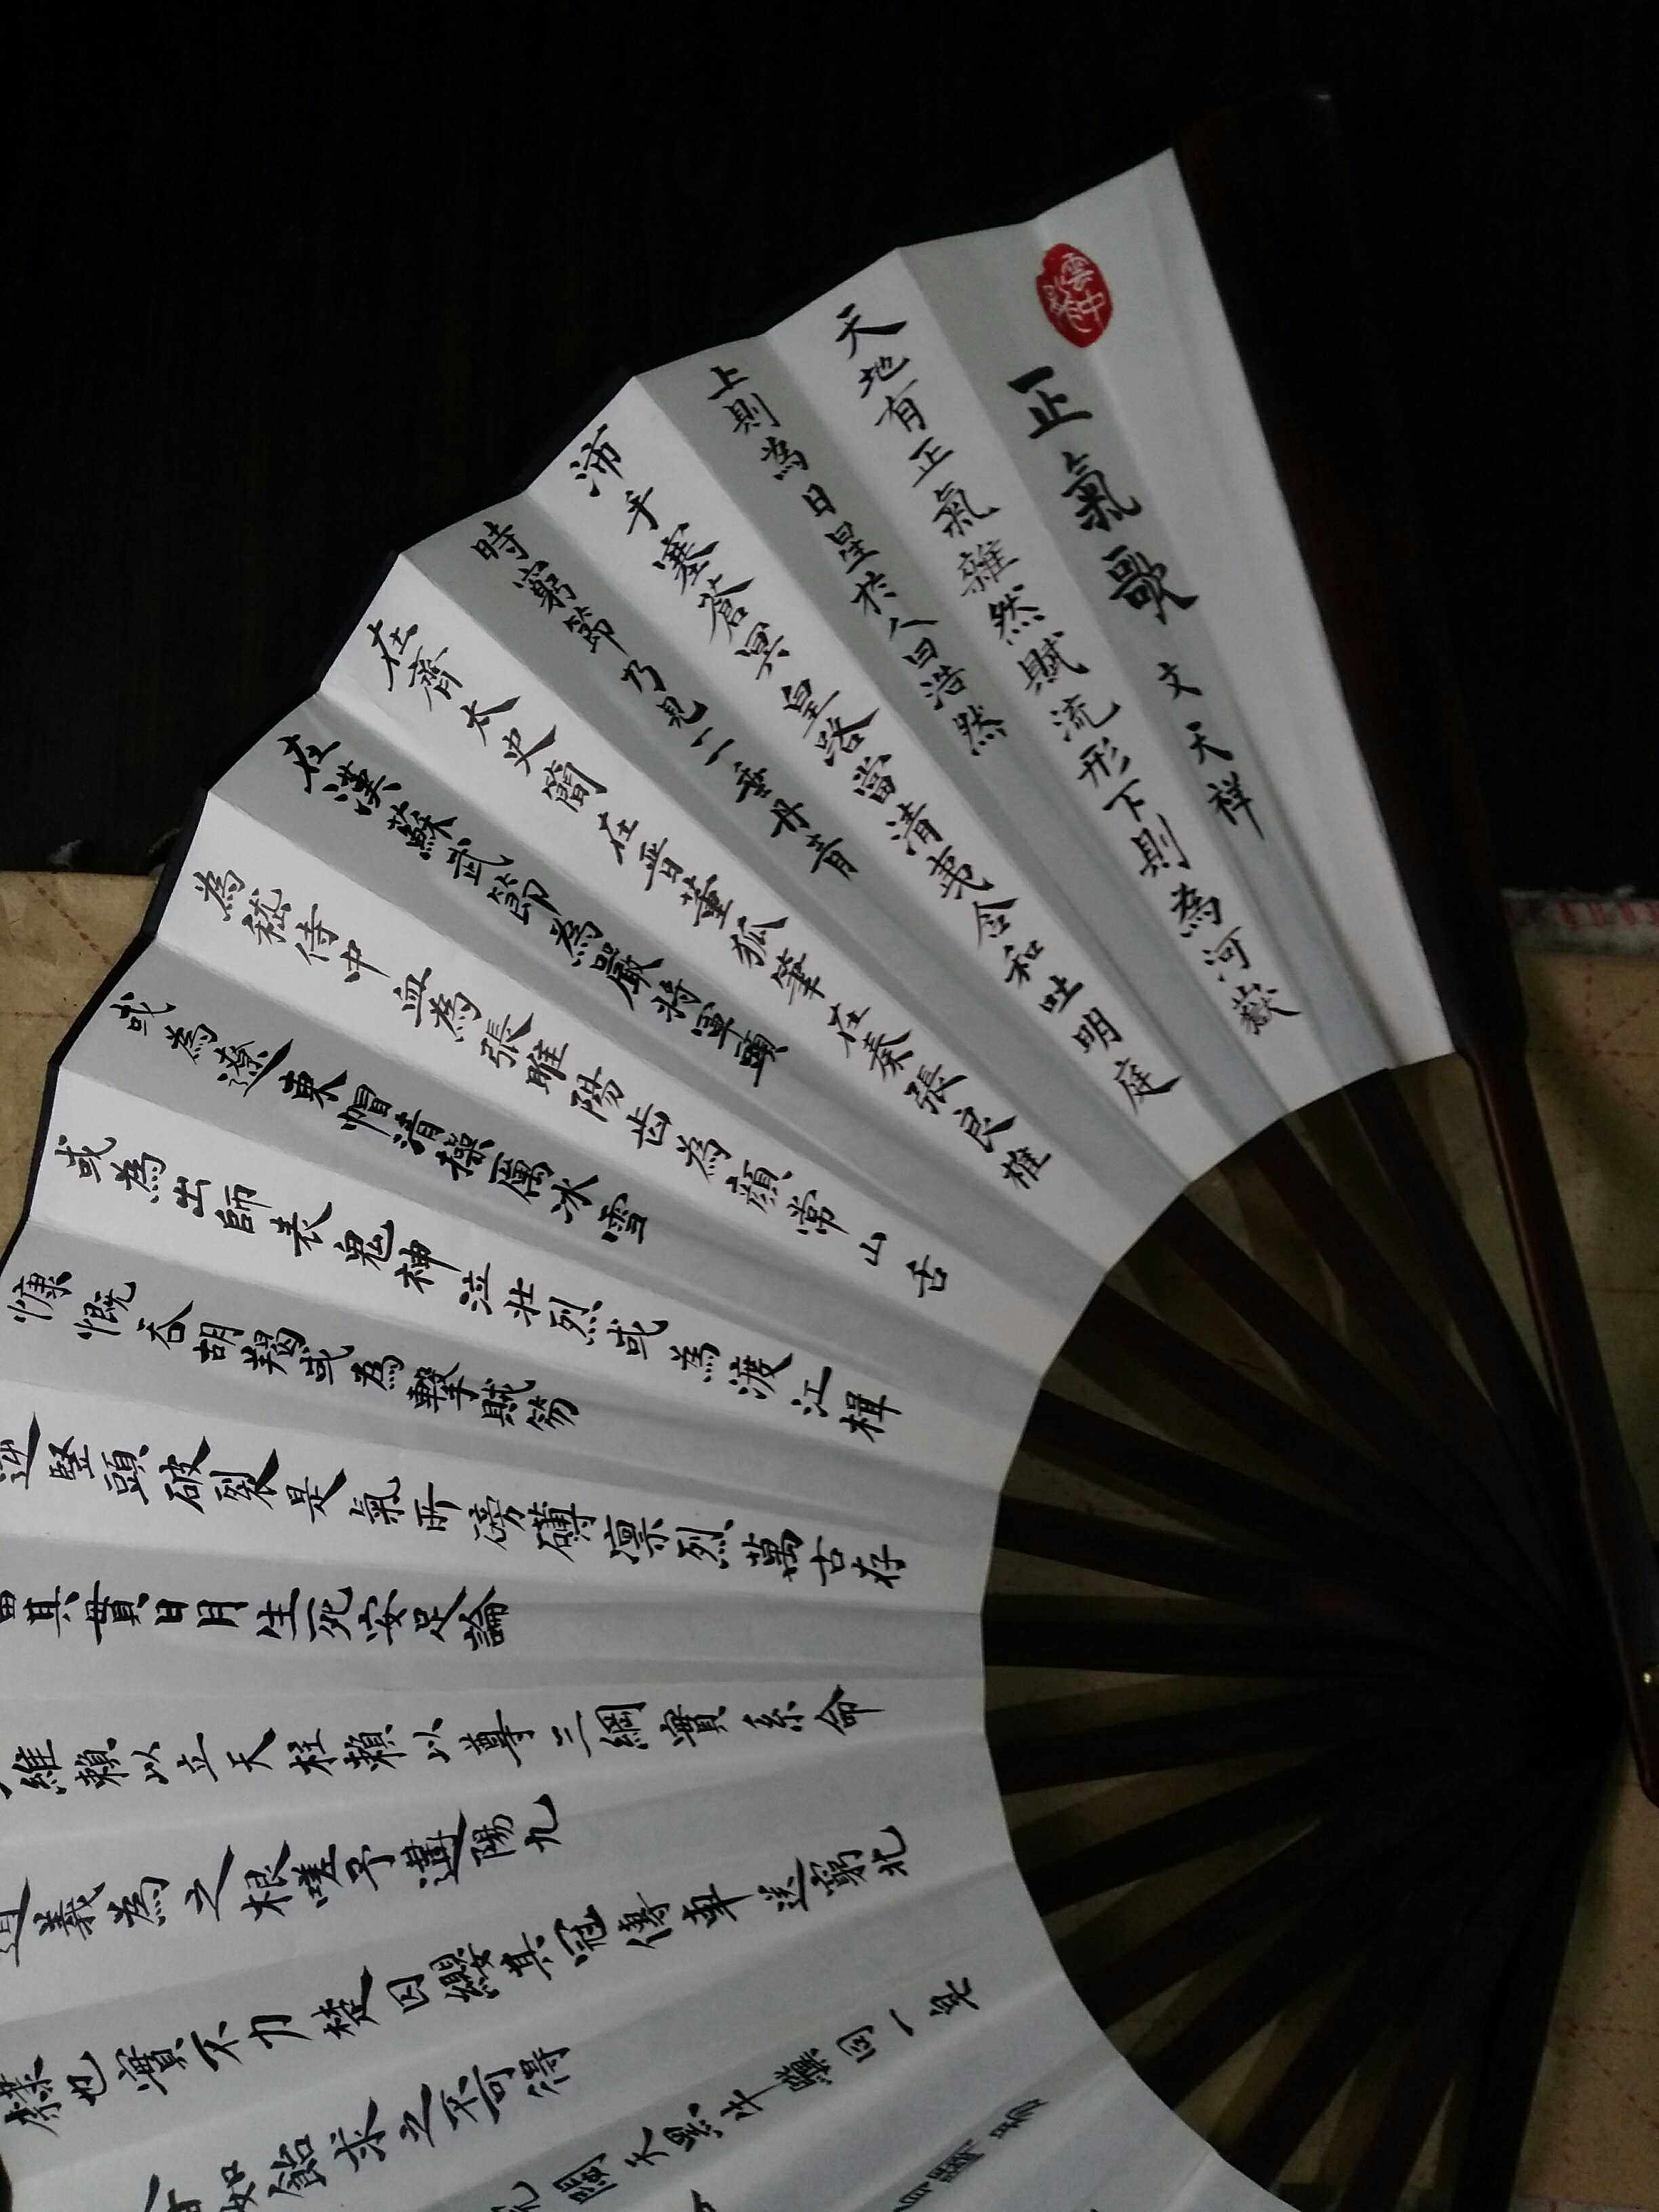 雲中
正氣歌 文天祥
天地有正氣雜然賦流形下則為河嶽
上則為日星於人曰浩然
沛乎塞蒼冥皇路當清夷含和吐明庭
時窮節乃見一一垂丹青
在齊太史簡在晉董狐筆在秦張良椎
在漢蘇武節為嚴將軍頭
為嵇侍中血為張睢陽齒為顏常山舌
或為遼東帽清操厲冰雪
或為出師表鬼神泣壯烈或為渡江楫
慷慨吞胡羯或為擊賊笏
逆豎頭破裂是氣所磅礴凜烈萬古存
當其貫日月生死安足論
維賴以立天柱賴以尊三綱實系命
道義為之根嗟予遘陽九
隸也實不力楚囚纓其冠傳車送窮北
如飴求之不可得
天黑牛驥同一皂